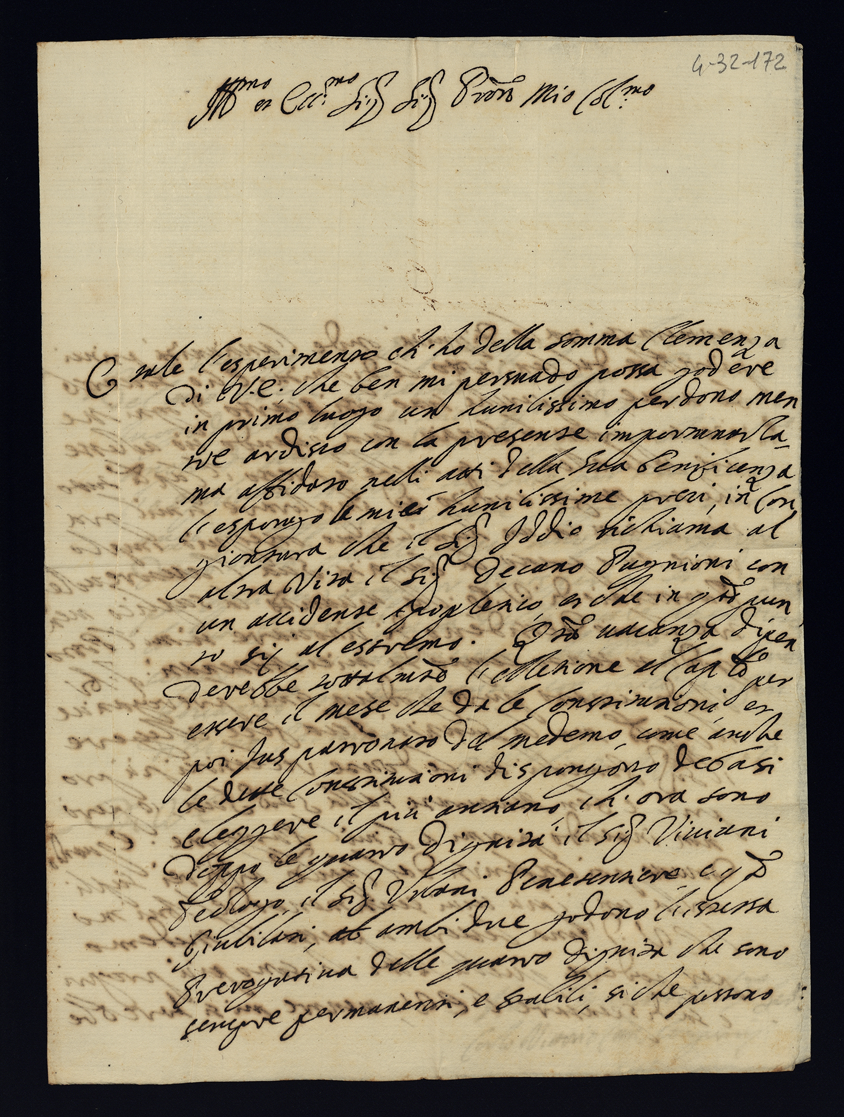 4-32-172
Ill.mo et Ecc.mo Sig.r Sig.r Pron Mio Col.mo
E tale l'esperimento ch'ho della somma Clemenza
di V.E. che ben mi persuado possa godere
in primo luogo un humilissimo perdono men
tre ardisco con la presente importunarla
ma affidato nelli atti della Sua Beneficenza
l'espongo le mie humilissime preci, in Con
giontura che il Sig.r Iddio richiama al
altra Vita il Sig.r Decano Pagnioni con
un accidente apopletico, et che in q.to pun
to sij al estremo. Q.ta vacanza dipen
derebbe l'elletione al Cap.lo per
essere il mese che da le Constitutioni, et
poi Jus patronato del medemo, come anche
le dette Constitutioni dispongono debasi
eleggere il più antiano, ch'ora sono
doppo le quatro dignità il Sig.r Viviani
Teologo, il Sig.r Vitani Penitentiere, e q.to
Giubilati, ambi due godono l'istessa
Prerogativa delle quatro dignità che sono
sempre permanenti, e stabili, si che possono